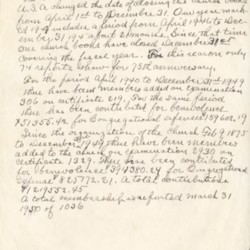 U.S.A. changed the date of closing the church books
from April 1st to December 31. One year mark-
ed 19 includes a period from April 1946 to Dec-
ember 31 19 about 21 months. Since that time
our church books have closed December 31st
covering the fiscal year. For this reason only
71 reports before for 75th anniversary.
For the period April 1940 to December 31-1949
there have been members added on examination
306 on certificate 219. For the same period
there has been contributed for benevolence
$51355.42 for Congregational expenses 159602.19
Since the organization of the Church Feb 9 1875
to December 1949 there have been members
added to the church on examination 2930 on
certificate 1329. There has been contributed
for benevolences 394380.24 for Congregational
expenses 825772.21. A total contributions
$1219552.45
A total membership reported March 31
1950 of 1036